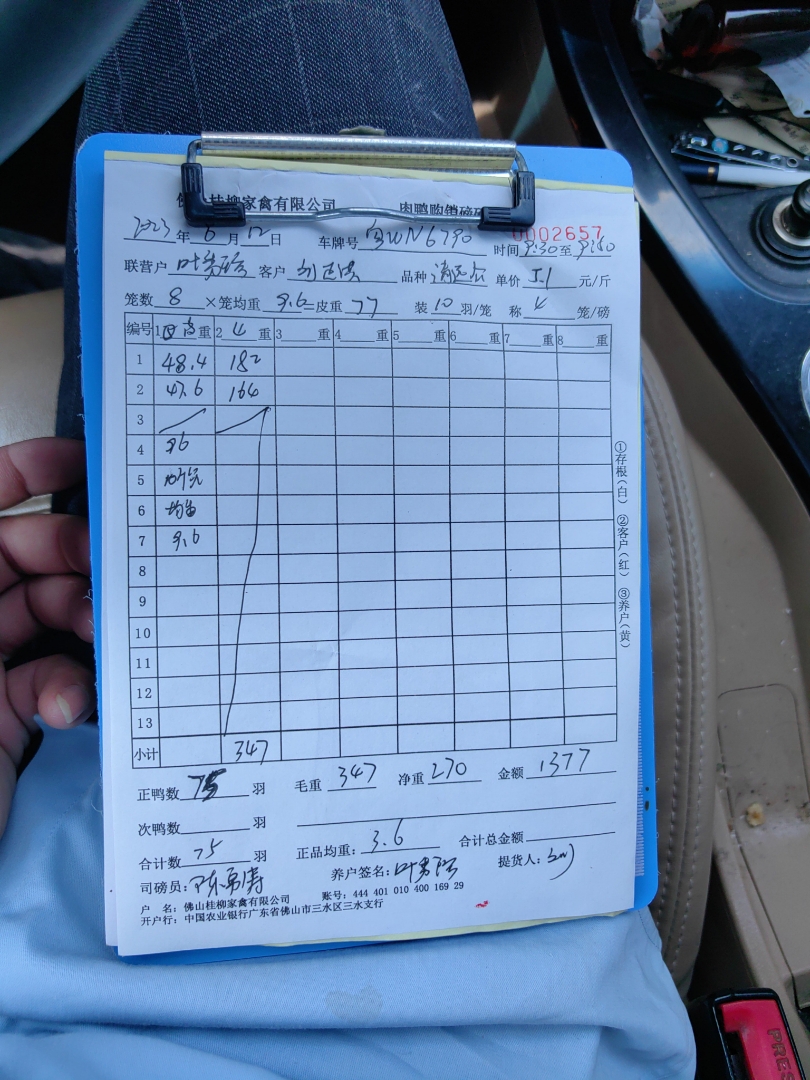 桂柳家禽有限公司 肉鸭购销磅
0002657
2023年6月12日 车牌号 WN6790 时间 9:30至9:40
联营户 叶 客户 品种 单价 5.1 元/斤
笼数 8 ×笼均重 9.6 =皮重 77 装 10 羽/笼 称 4 笼/磅
编号 1 重 2 4 重 3 重 4 重 5 重 6 重 7 重 8 重
1 48.4 182
2 47.6 164
3
4 96
5
6
7 9.6
8
9
10
11
12
13
小计 347
正鸭数 75 羽 毛重 347 净重 270 金额 1377
次鸭数 羽
合计数 75 羽 正品均重: 3.6 合计总金额
司磅员: 陈 养户签名: 叶 提货人:
户 名: 佛山桂柳家禽有限公司 账号: 444 401 010 400 169 29
开户行: 中国农业银行广东省佛山市三水区三水支行
①存根(白) ②客户(红) ③养户(黄)
PRES